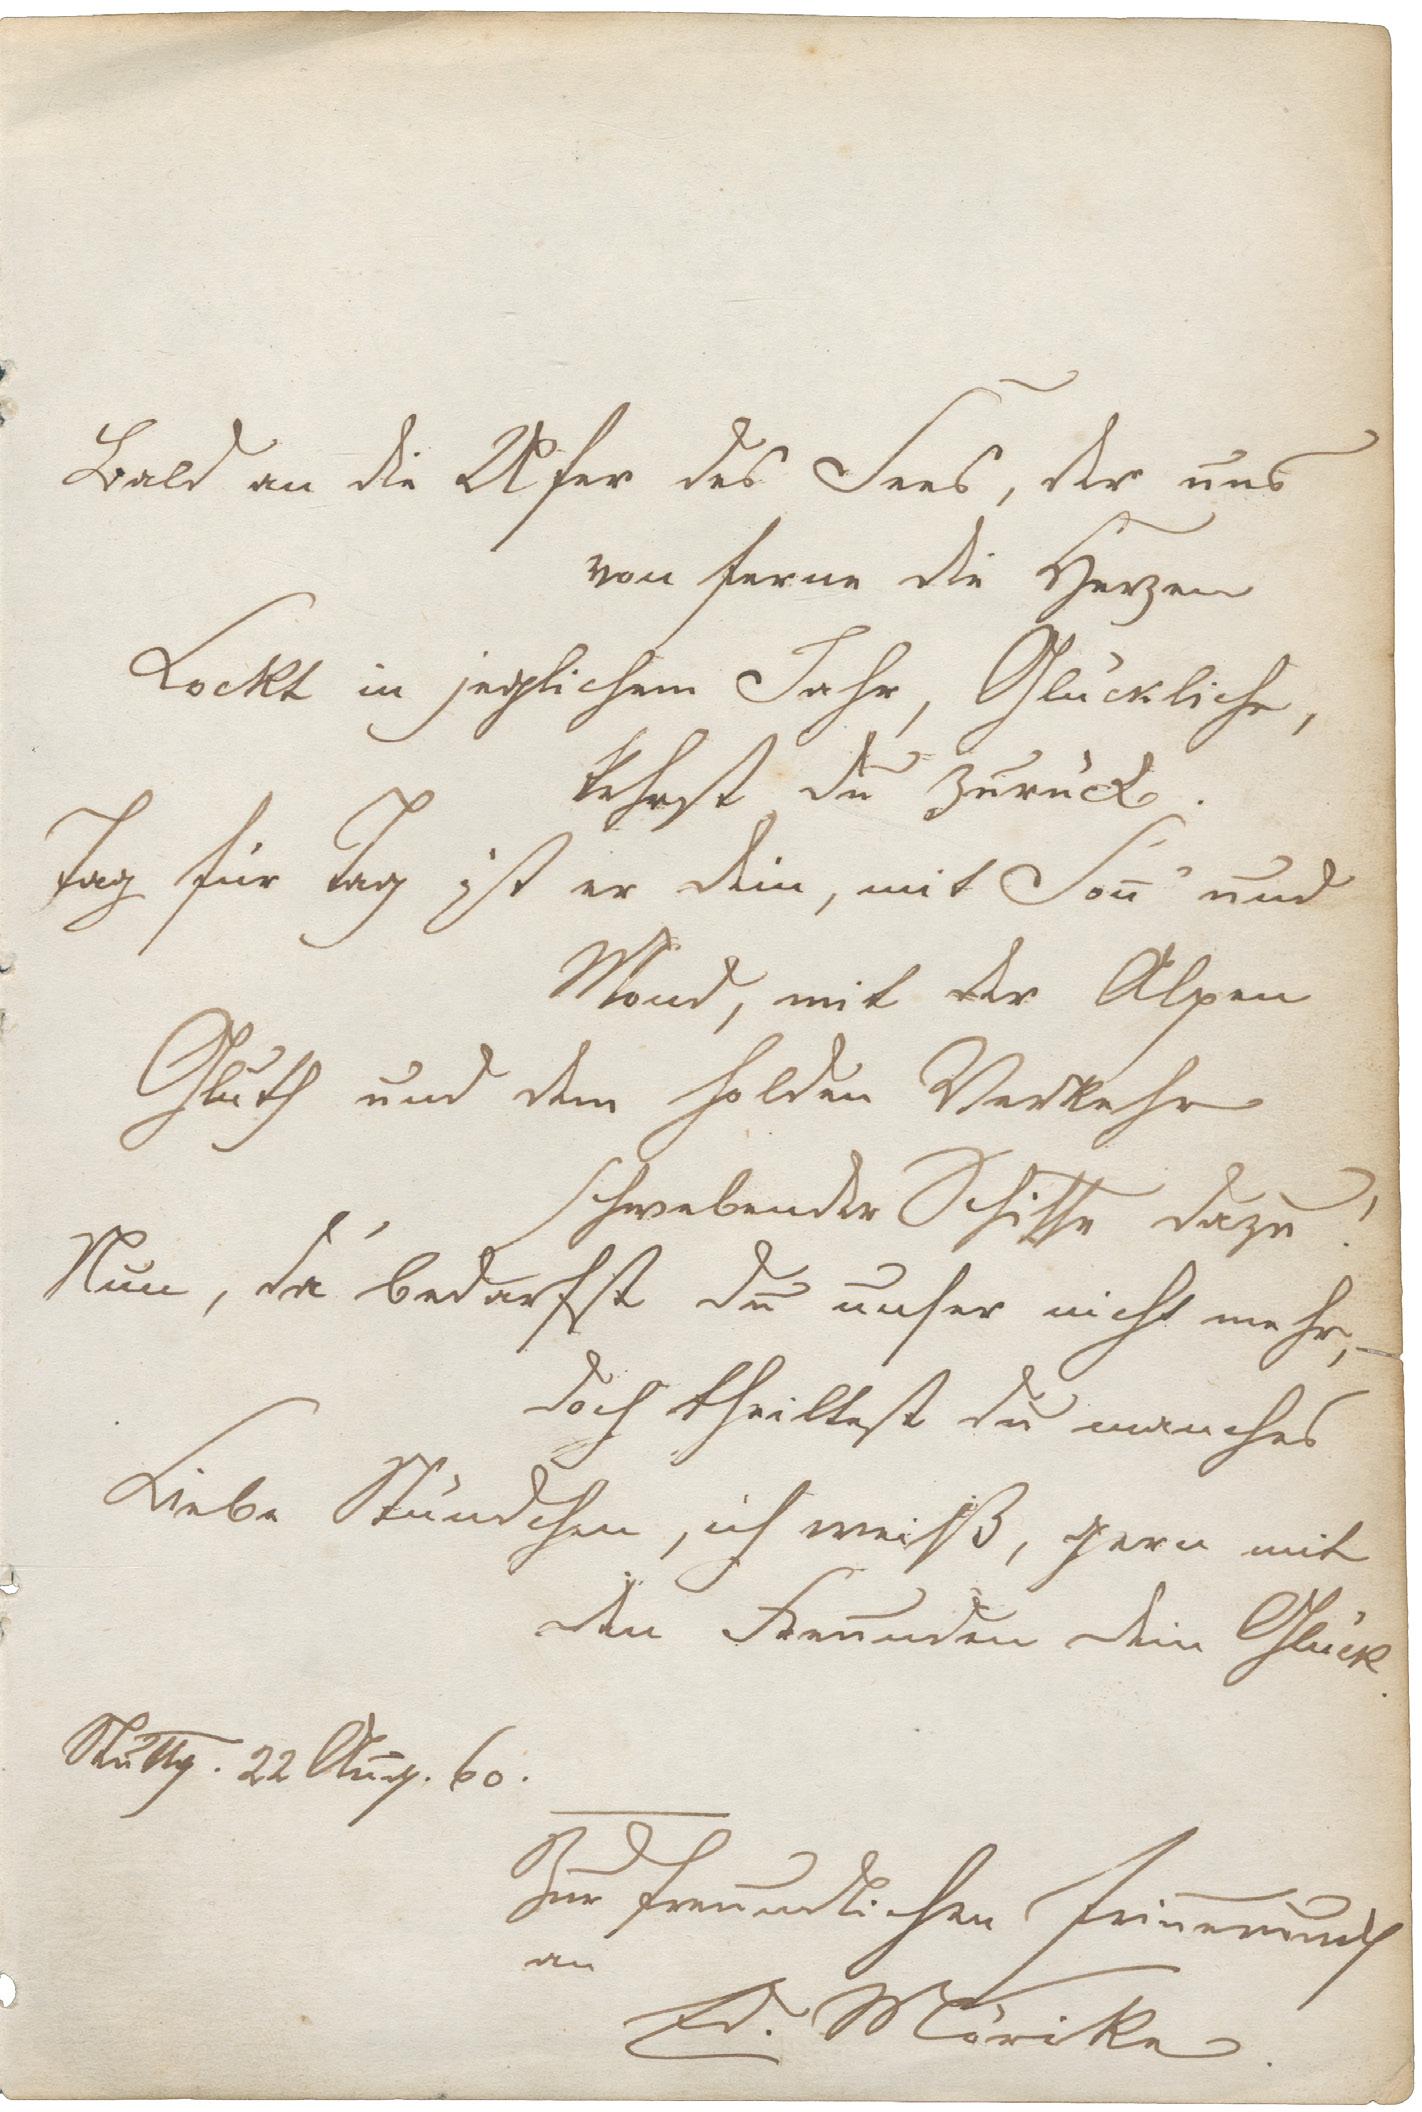 Bald an die Ufer des Sees, der uns
von ferne die Herzen
Lockt in jeglichem Jahr, Glückliche,
kehrst du zurück.
Tag für Tag ist er dein, mit Soñ’ und
Mond, mit der Alpen
Gluth und dem holden Verkehr
schwebender Schiffe dazu!
Nun, da bedarfst du unser nicht mehr, –
doch theiltest du manches
Liebe Stündchen, ich weiß, gern mit
den Freunden dein Glück.
Stuttg. 22 Aug. 60.
Zur freundlichen Erin̄erung
an
Ed. Mörike.